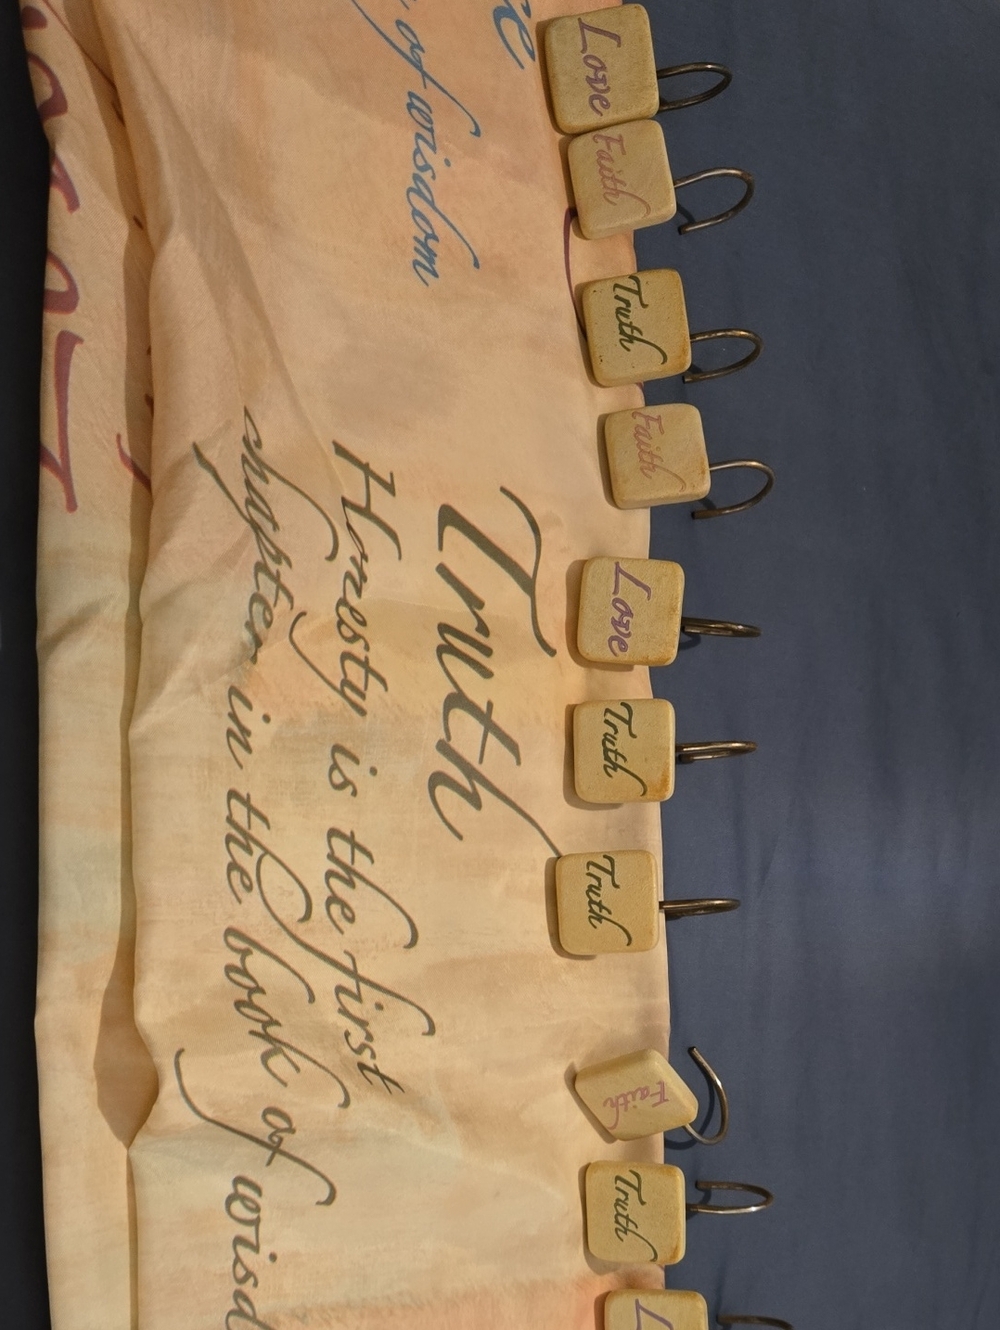 of wisdom
Truth
Honesty is the first
chapter in the book of
Love
Faith
Truth
Faith
Love
Truth
Truth
Faith
Truth